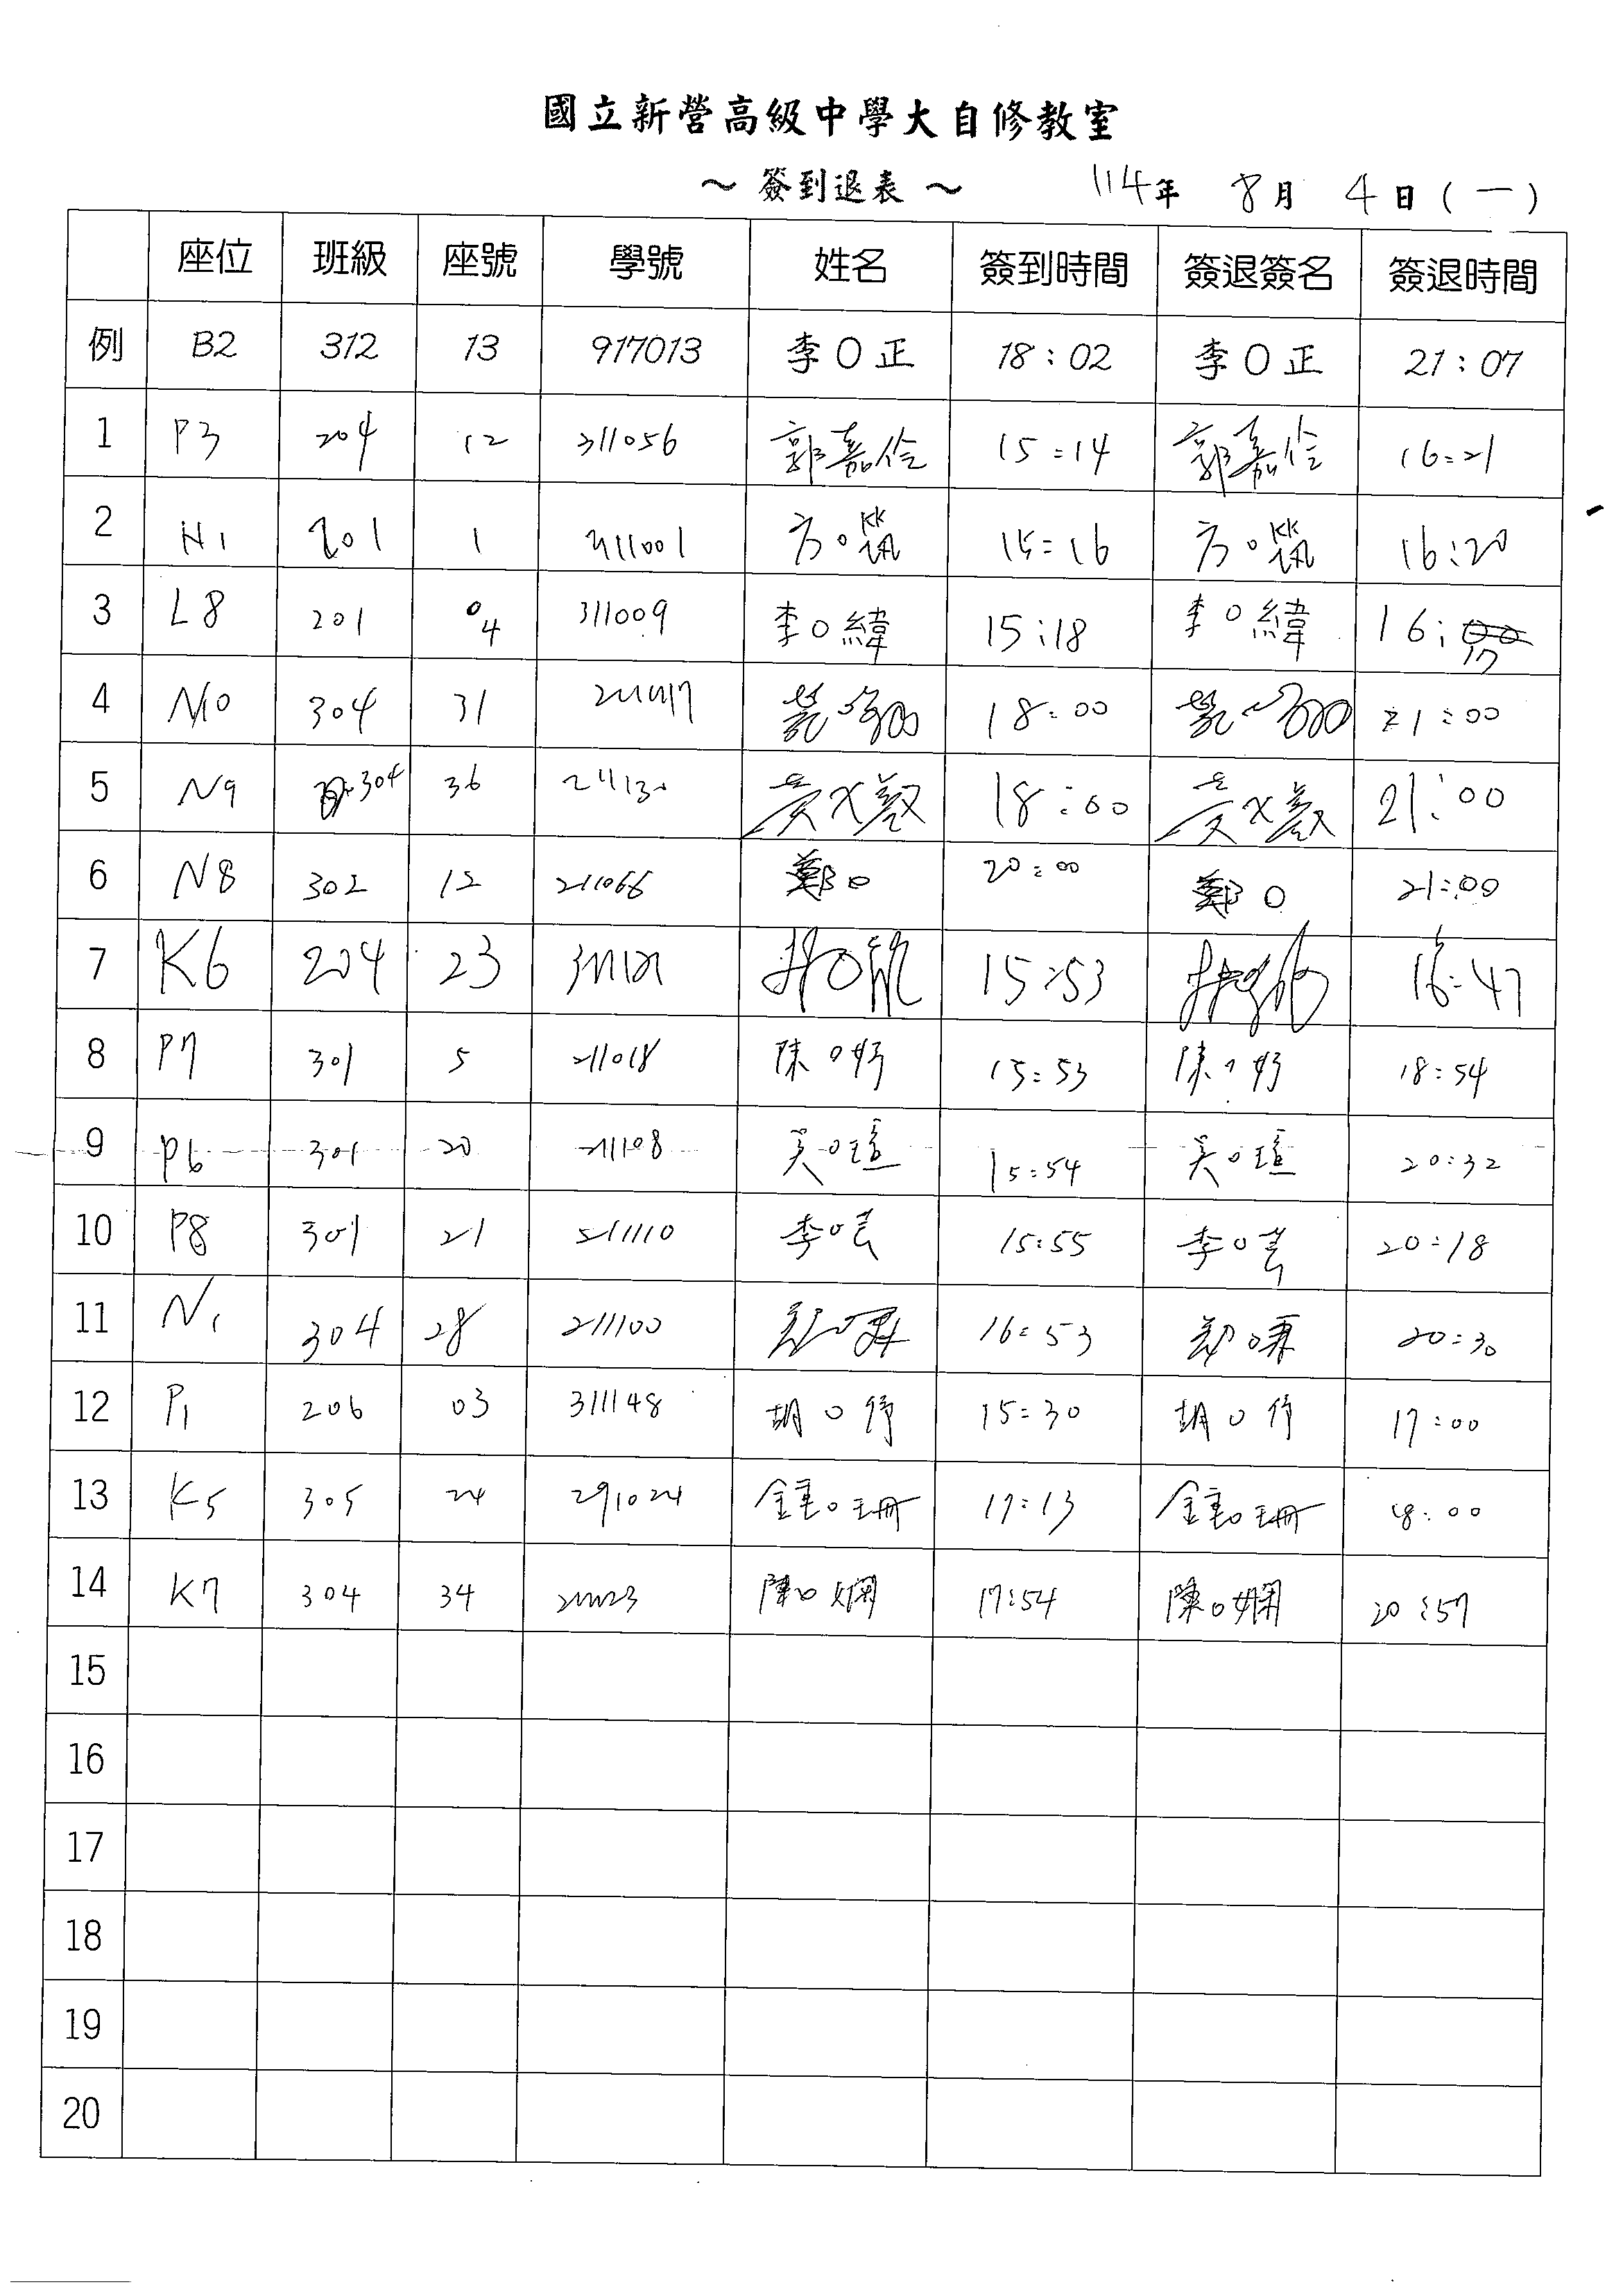 國立新營高級中學大自修教室
～ 簽到退表 ～ 114年 8月 4日(一)
座位 班級 座號 學號 姓名 簽到時間 簽退簽名 簽退時間
例 B2 312 13 917013 李〇正 18:02 李〇正 21:07
1 P3 204 12 311056 郭嘉伶 15:14 郭嘉伶 16:21
2 H1 201 1 311001 方〇 15:16 方〇 16:20
3 L8 201 04 311009 李〇緯 15:18 李〇緯 16:17
4 N10 304 31 18:00 21:00
5 N9 304 36 黃 18:00 黃 21:00
6 N8 302 12 211066 鄭〇 20:00 鄭〇 21:00
7 K6 204 23 15:53 16:47
8 P7 301 5 211018 陳〇妤 15:53 陳〇妤 18:54
9 P6 301 20 211108 吳〇瑄 15:54 吳〇瑄 20:32
10 P8 301 21 211110 李〇 15:55 李〇 20:18
11 N1 304 28 211100 16:53 20:30
12 P1 206 03 311148 胡〇 15:30 胡〇 17:00
13 K5 305 24 291024 鍾〇珊 17:13 鍾〇珊 18:00
14 K7 304 34 陳〇嫻 17:54 陳〇嫻 20:57
15
16
17
18
19
20